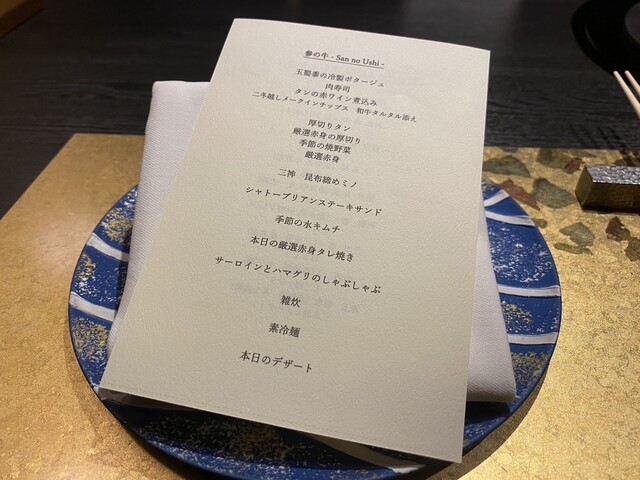 参の牛 - San no Ushi -
玉蜀黍の冷製ポタージュ
肉寿司
タンの赤ワイン煮込み
二冬越しメークインチップス　和牛タルタル添え
厚切りタン
厳選赤身の厚切り
季節の焼野菜
厳選赤身
三神　昆布締めミノ
シャトーブリアンステーキサンド
季節の水キムチ
本日の厳選赤身タレ焼き
サーロインとハマグリのしゃぶしゃぶ
雑炊
素冷麺
本日のデザート